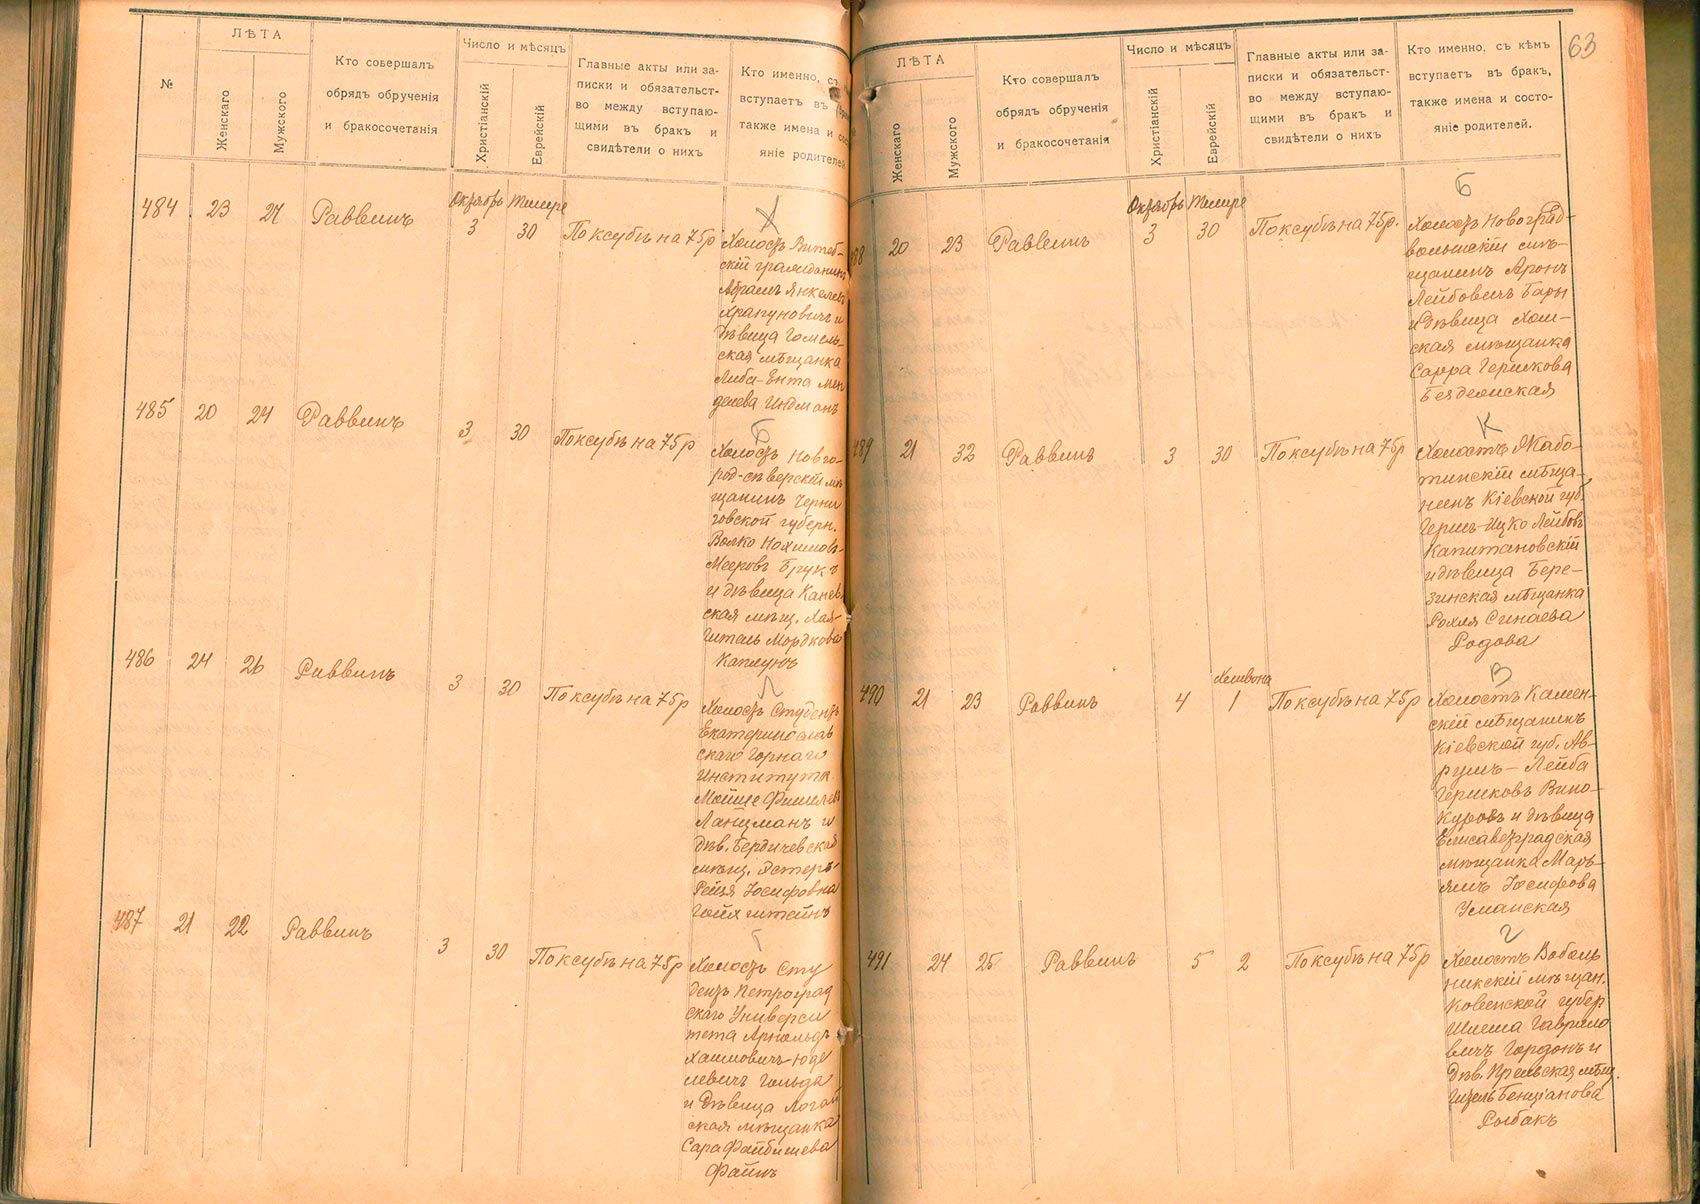 №
ЛѢТА
Женскаго
Мужского
Кто совершалъ
обрядъ обрученія
и бракосочетанія
Число и мѣсяцъ
Христіанскій
Еврейскій
Главные акты или за-
писки и обязательст-
во между вступаю-
щими въ бракъ и
свидѣтели о нихъ
Кто именно, съ
вступаетъ въ
также имена и сос
яніе родителей
484 23 27 Раввинъ
Октябрь Тишре
3 30 По ксубѣ на 75 р
Х
Холостъ Витеб-
скій гражданинъ
Абрамъ Янкелев
Храпуновичъ и
дѣвица Гомель-
ская мѣщанка
Либа-Ента Мен
делева Индманъ
485 20 24 Раввинъ
3 30 По ксубѣ на 75 р
Б
Холостъ Новго-
род-сѣверскій мѣ
щанинъ Черни
говской губерн.
Волко Нохимовъ-
Мееровъ Брукъ
и дѣвица Канев
ская мѣщ. Хая-
Гитель Мордкова
Каплунъ
486 24 26 Раввинъ
3 30 По ксубѣ на 75 р
Л
Холостъ Студентъ
Екатеринослав
скаго Горнаго
Института
Мойше Фишелевъ
Ланцманъ и
дѣв. Бердичевская
мѣщ. Эстеръ-
Рейзя Іосифовна
Гойхштейнъ
487 21 22 Раввинъ
3 30 По ксубѣ на 75 р
Г
Холостъ Сту
дентъ Петроград
скаго Универси
тета Арнольдъ
Хаимовичъ-Юде
левичъ Гольда
и дѣвица Логой
ская мѣщанка
Сара Файбишева
Файнъ
63
ЛѢТА
Женскаго
Мужского
Кто совершалъ
обрядъ обрученія
и бракосочетанія
Число и мѣсяцъ
Христіанскій
Еврейскій
Главные акты или за-
писки и обязательст-
во между вступаю-
щими въ бракъ и
свидѣтели о нихъ
Кто именно, съ кѣмъ
вступаетъ въ бракъ,
также имена и состо-
яніе родителей.
88 20 23 Раввинъ
Октябрь Тишре
3 30 По ксубѣ на 75 р.
Б
Холостъ Новоград-
волынскій мѣ-
щанинъ Аронъ
Лейбовичъ Бары
и дѣвица Хом-
ская мѣщанка
Сарра Гершкова
Бездежская
489 21 32 Раввинъ
3 30 По ксубѣ на 75 р
К
Холостъ Жабо-
тинскій мѣща-
нинъ Кіевской губ.
Герш-Ицко Лейбовъ
Капитановскій
и дѣвица Бере-
зинская мѣщанка
Рохля Синаева
Родова
490 21 23 Раввинъ
Хешвона
4 1 По ксубѣ на 75 р
В
Холостъ Камен-
скій мѣщанинъ
Кіевской губ. Ав-
румъ-Лейба
Гершковъ Вино-
куровъ и дѣвица
Елисаветградская
мѣщанка Марь-
ямъ Іосифова
Уманская
491 24 25 Раввинъ
5 2 По ксубѣ на 75 р
Г
Холостъ Воболь
никскій мѣщан.
Ковенской губер
Шлема Гаврило
вичъ Гордонъ и
дѣв. мѣщ.
Гитель Бенціанова
Рыбакъ